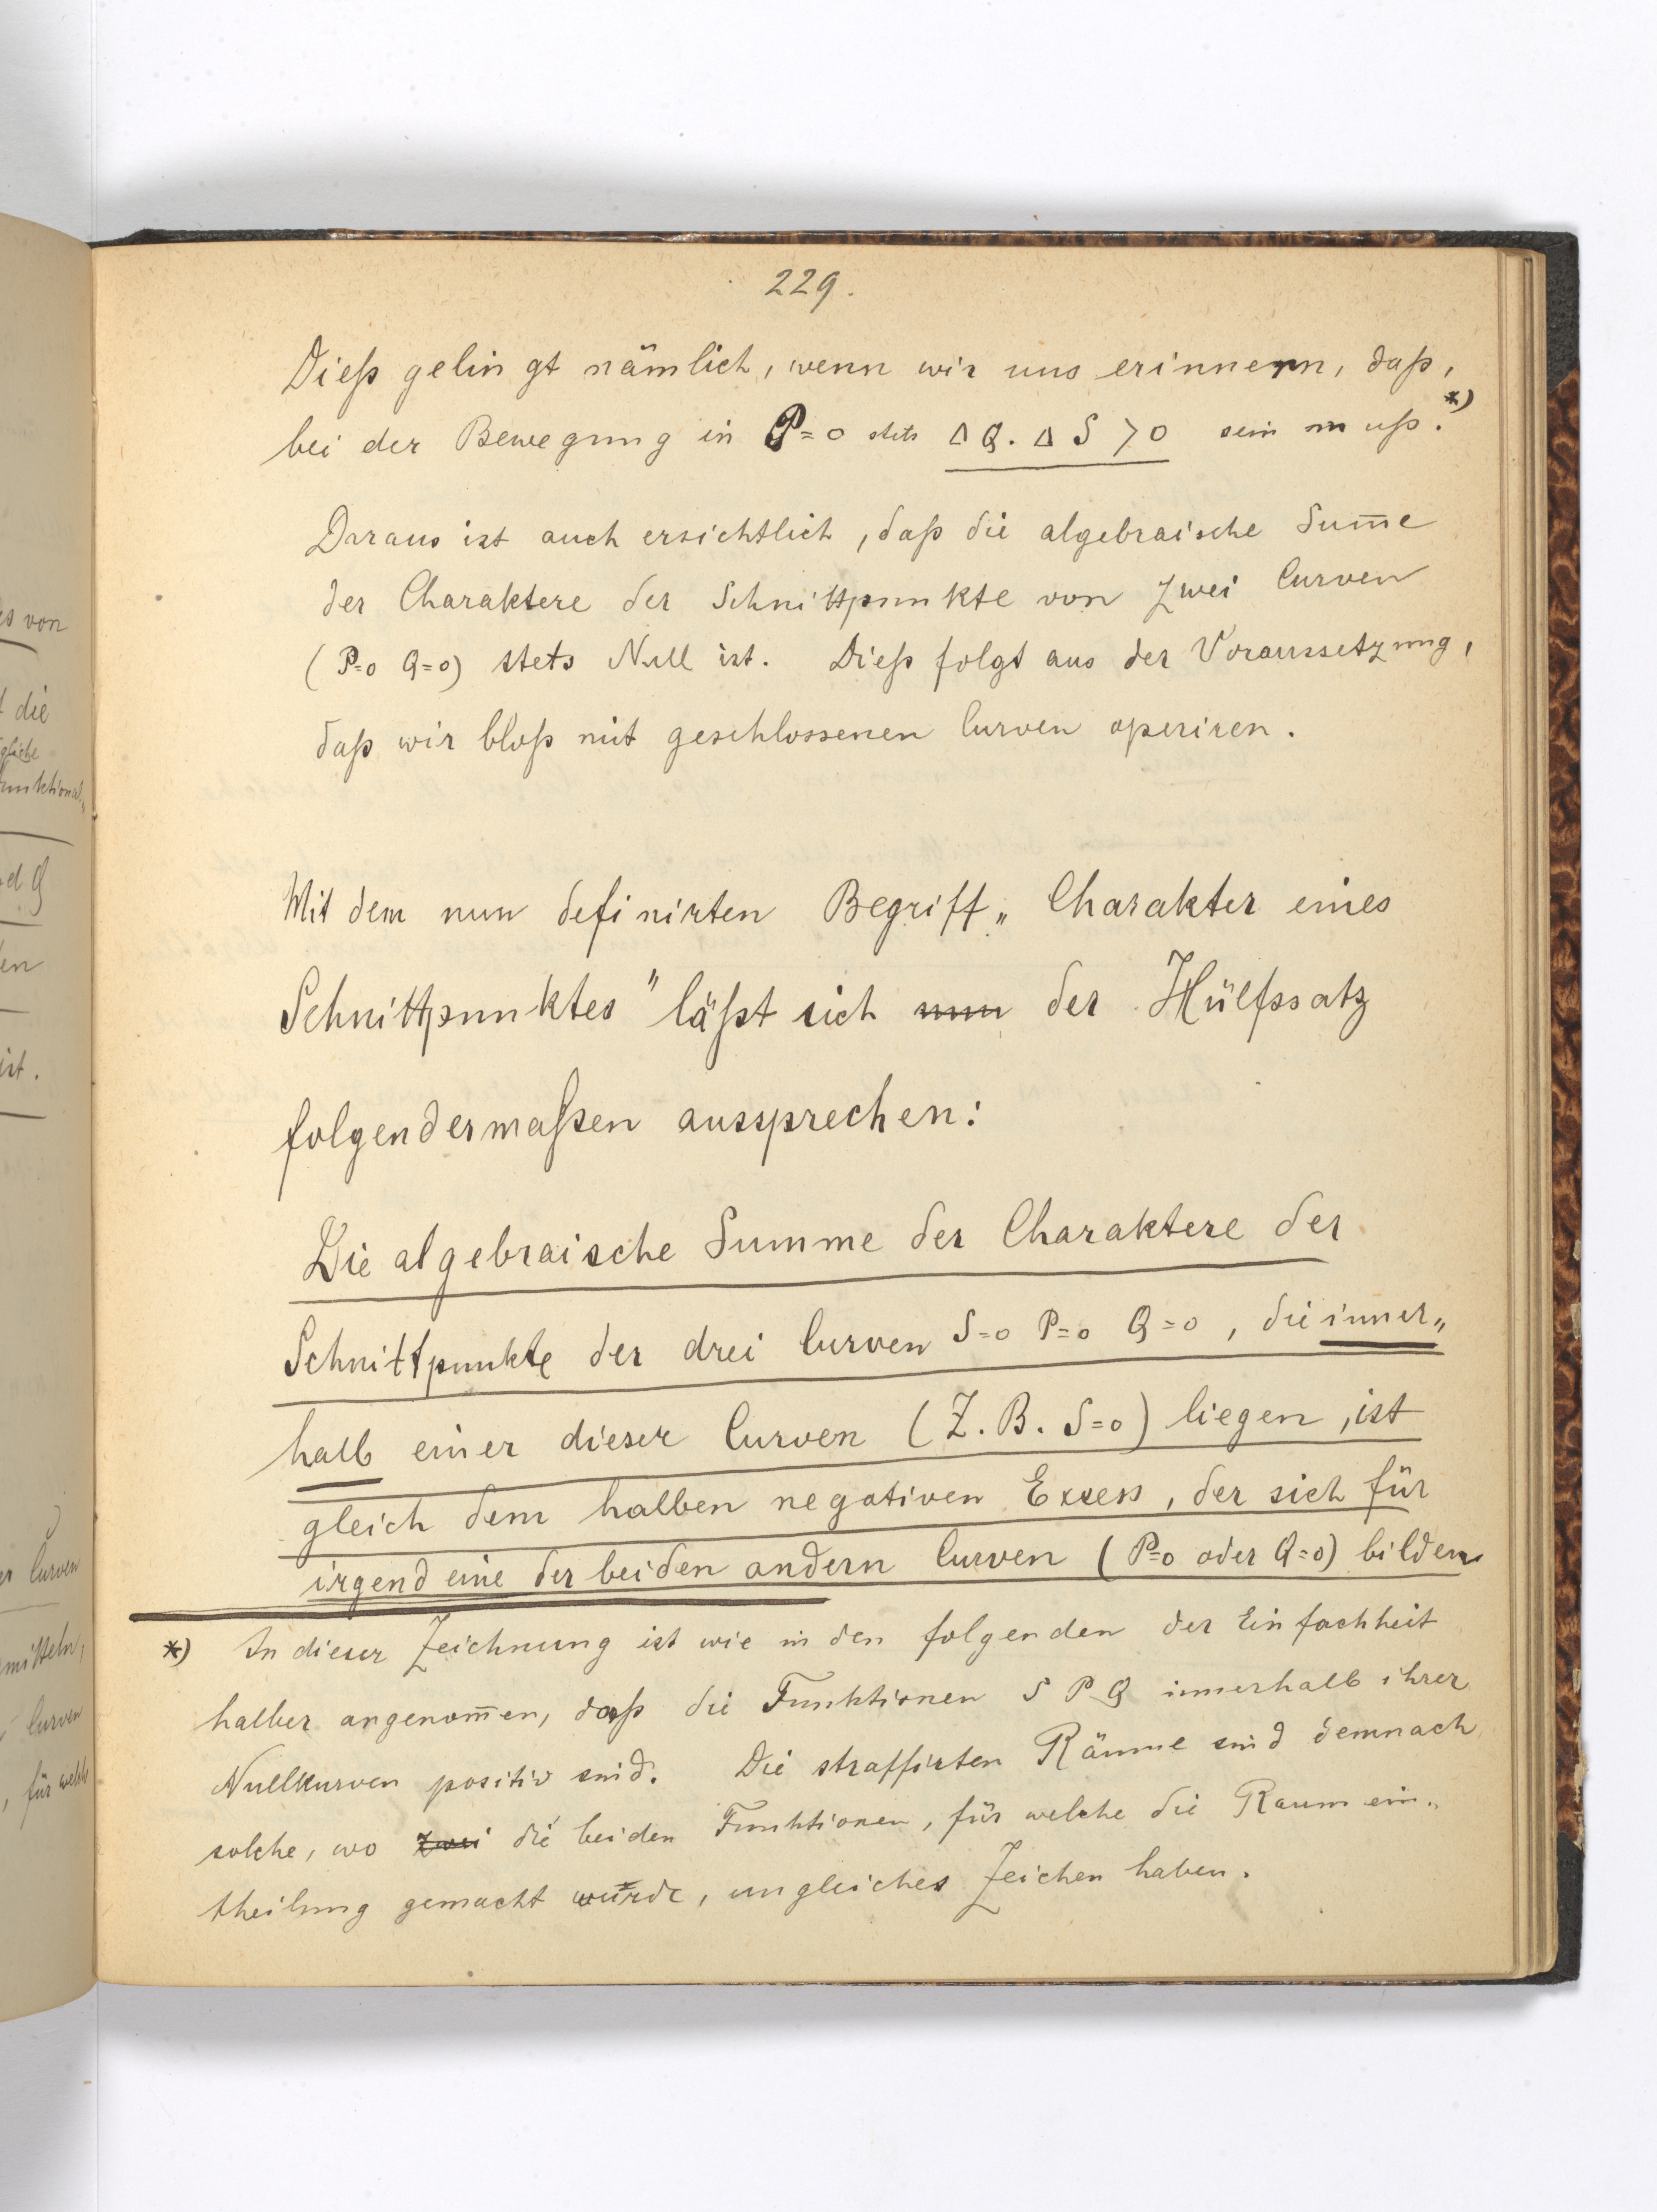 229.
Dieß gelingt nämlich, wenn wir uns erinnern, daß,
bei der Bewegung in P=0 stets Δ Q. Δ S > 0 sein muß.*)
Daraus ist auch ersichtlich, daß die algebraische Sum̄e
der Charaktere der Schnittpunkte von zwei Curven
(P=0 Q=0) stets Null ist. Dieß folgt aus der Voraussetzung,
daß wir bloß mit geschlossenen Curven operiren.
Mit dem nun definirten Begriff „Charakter eines
Schnittpunktes" läßt sich nun der Hülfssatz
folgendermaßen aussprechen:
Die algebraische Summe der Charaktere der
Schnittpunkte der drei Curven S=0 P=0 Q=0, die inner„
halb einer dieser Curven (Z.B. S=0) liegen, ist
gleich dem halben negativen Excess, der sich für
irgend eine der beiden andern Curven (P=0 oder Q=0) bilden
*) In dieser Zeichnung ist wie in den folgenden der Einfachheit
halber angenom̄en, daß die Funktionen S P Q innerhalb ihrer
Nullkurven positiv sind. Die straffirten Räume sind demnach
solche, wo zwei die beiden Funktionen, für welche die Raumein„
theilung gemacht wurde, ungleiches Zeichen haben.
es von
die
gliche
funktional„
d Q
en
ist.
er Curven
mitteln,
Curven
, für welch